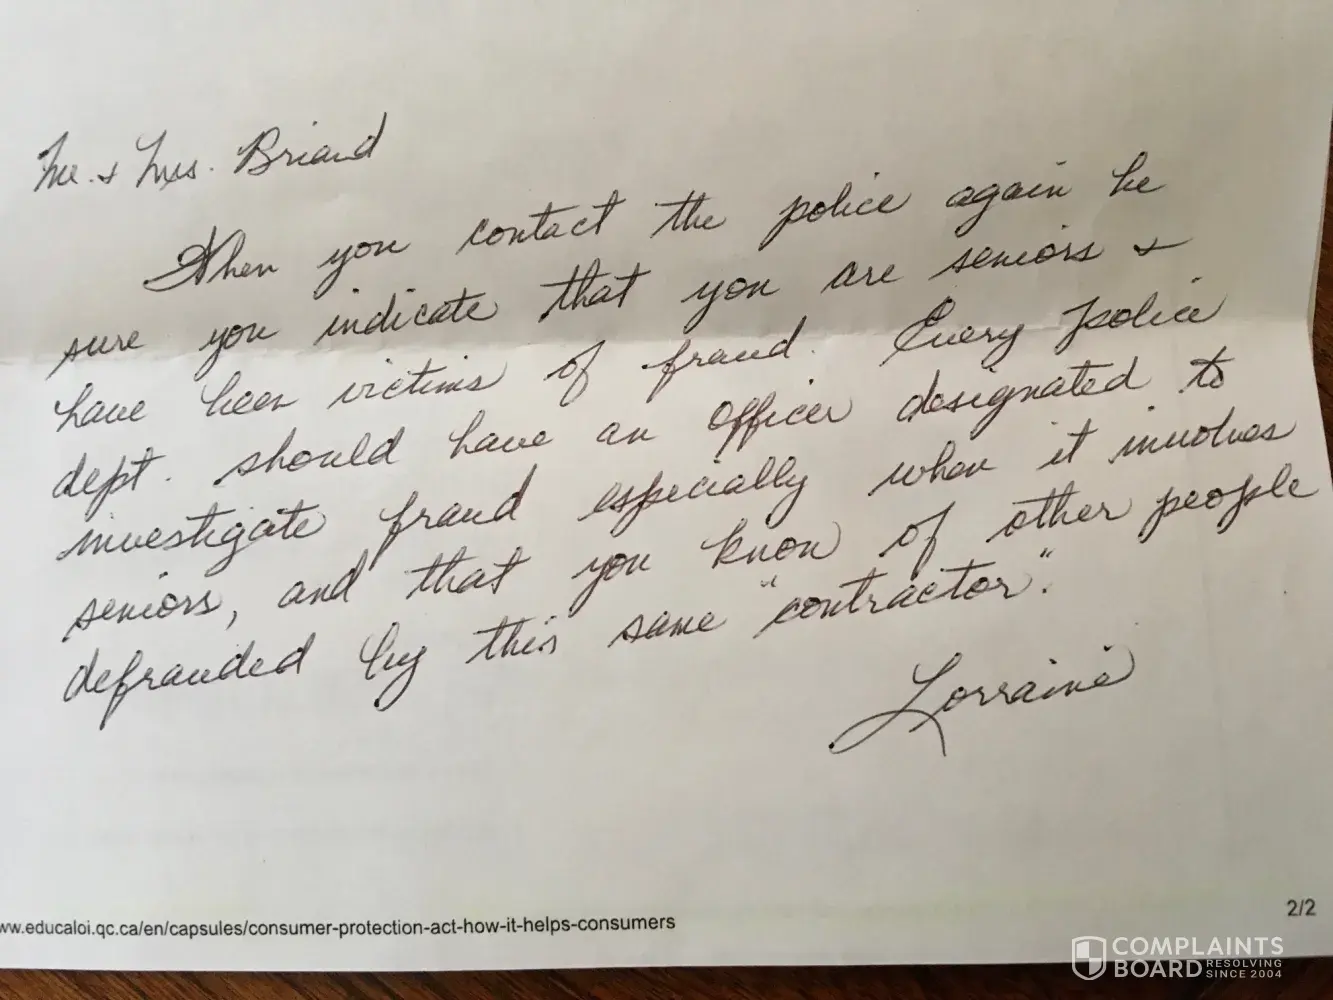 Mr. & Mrs. Briand
When you contact the police again be
sure you indicate that you are seniors &
have been victims of fraud. Every police
dept. should have an officer designated to
investigate fraud especially when it involves
seniors, and that you know of other people
defrauded by this same "contractor".
Lorraine
ww.educaloi.qc.ca/en/capsules/consumer-protection-act-how-it-helps-consumers
2/2
COMPLAINTS
BOARD RESOLVING
SINCE 2004